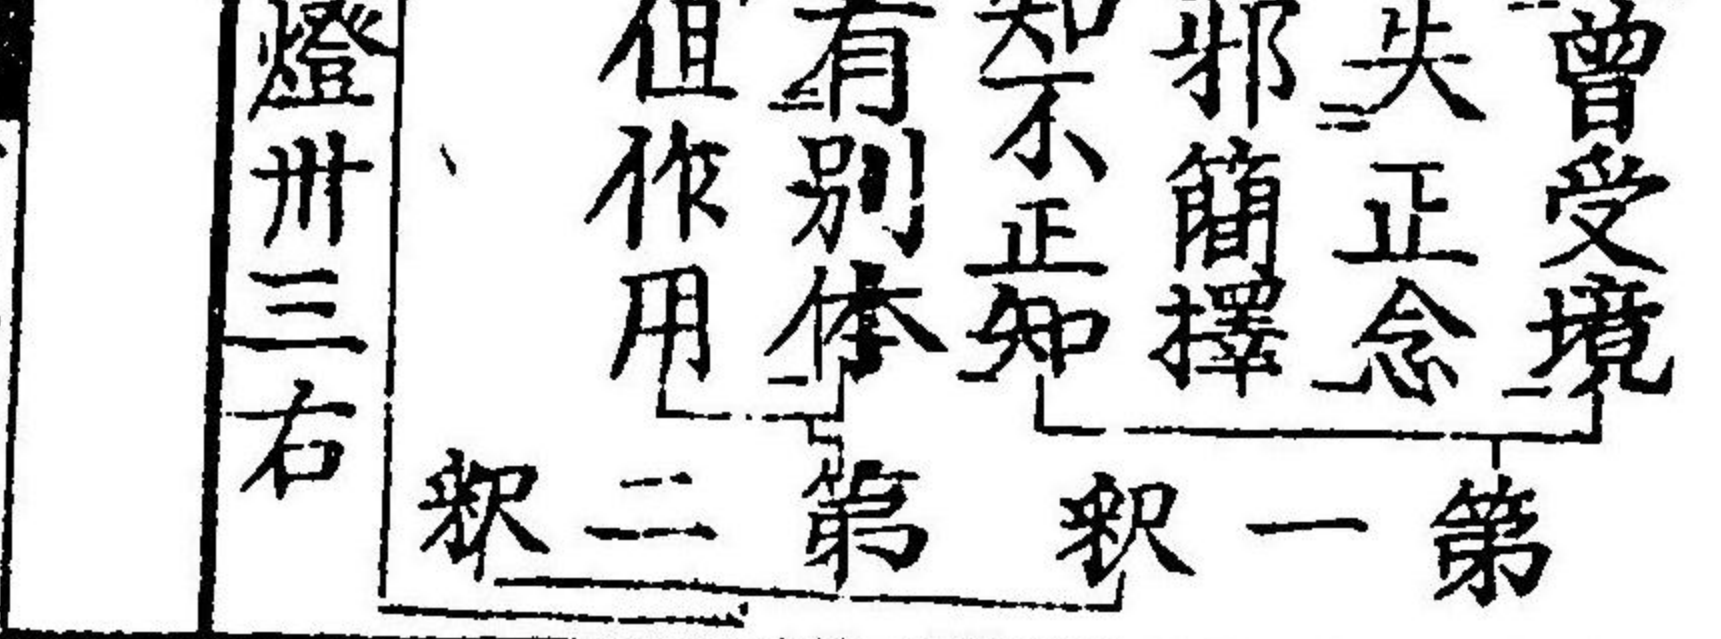 曾受境
失正念
邪簡擇
知不正知
有別体
但作用
第一釈
第二釈
燈卅三右